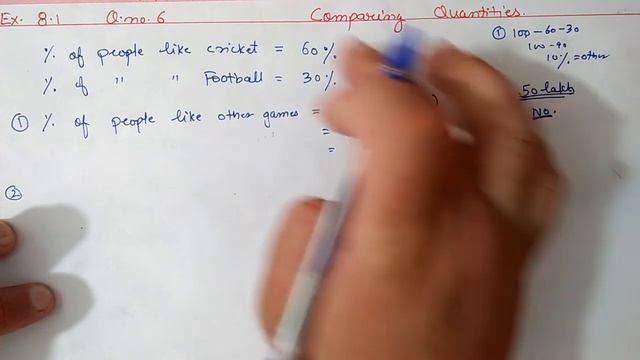 Ex. 8.1 Q.no. 6 Comparing Quantities.
% of people like cricket = 60%.
% of " " Football = 30%.
① % of people like other games =
=
=
②
① 100-60-30
100-90
10% = other
50 lakh
No.